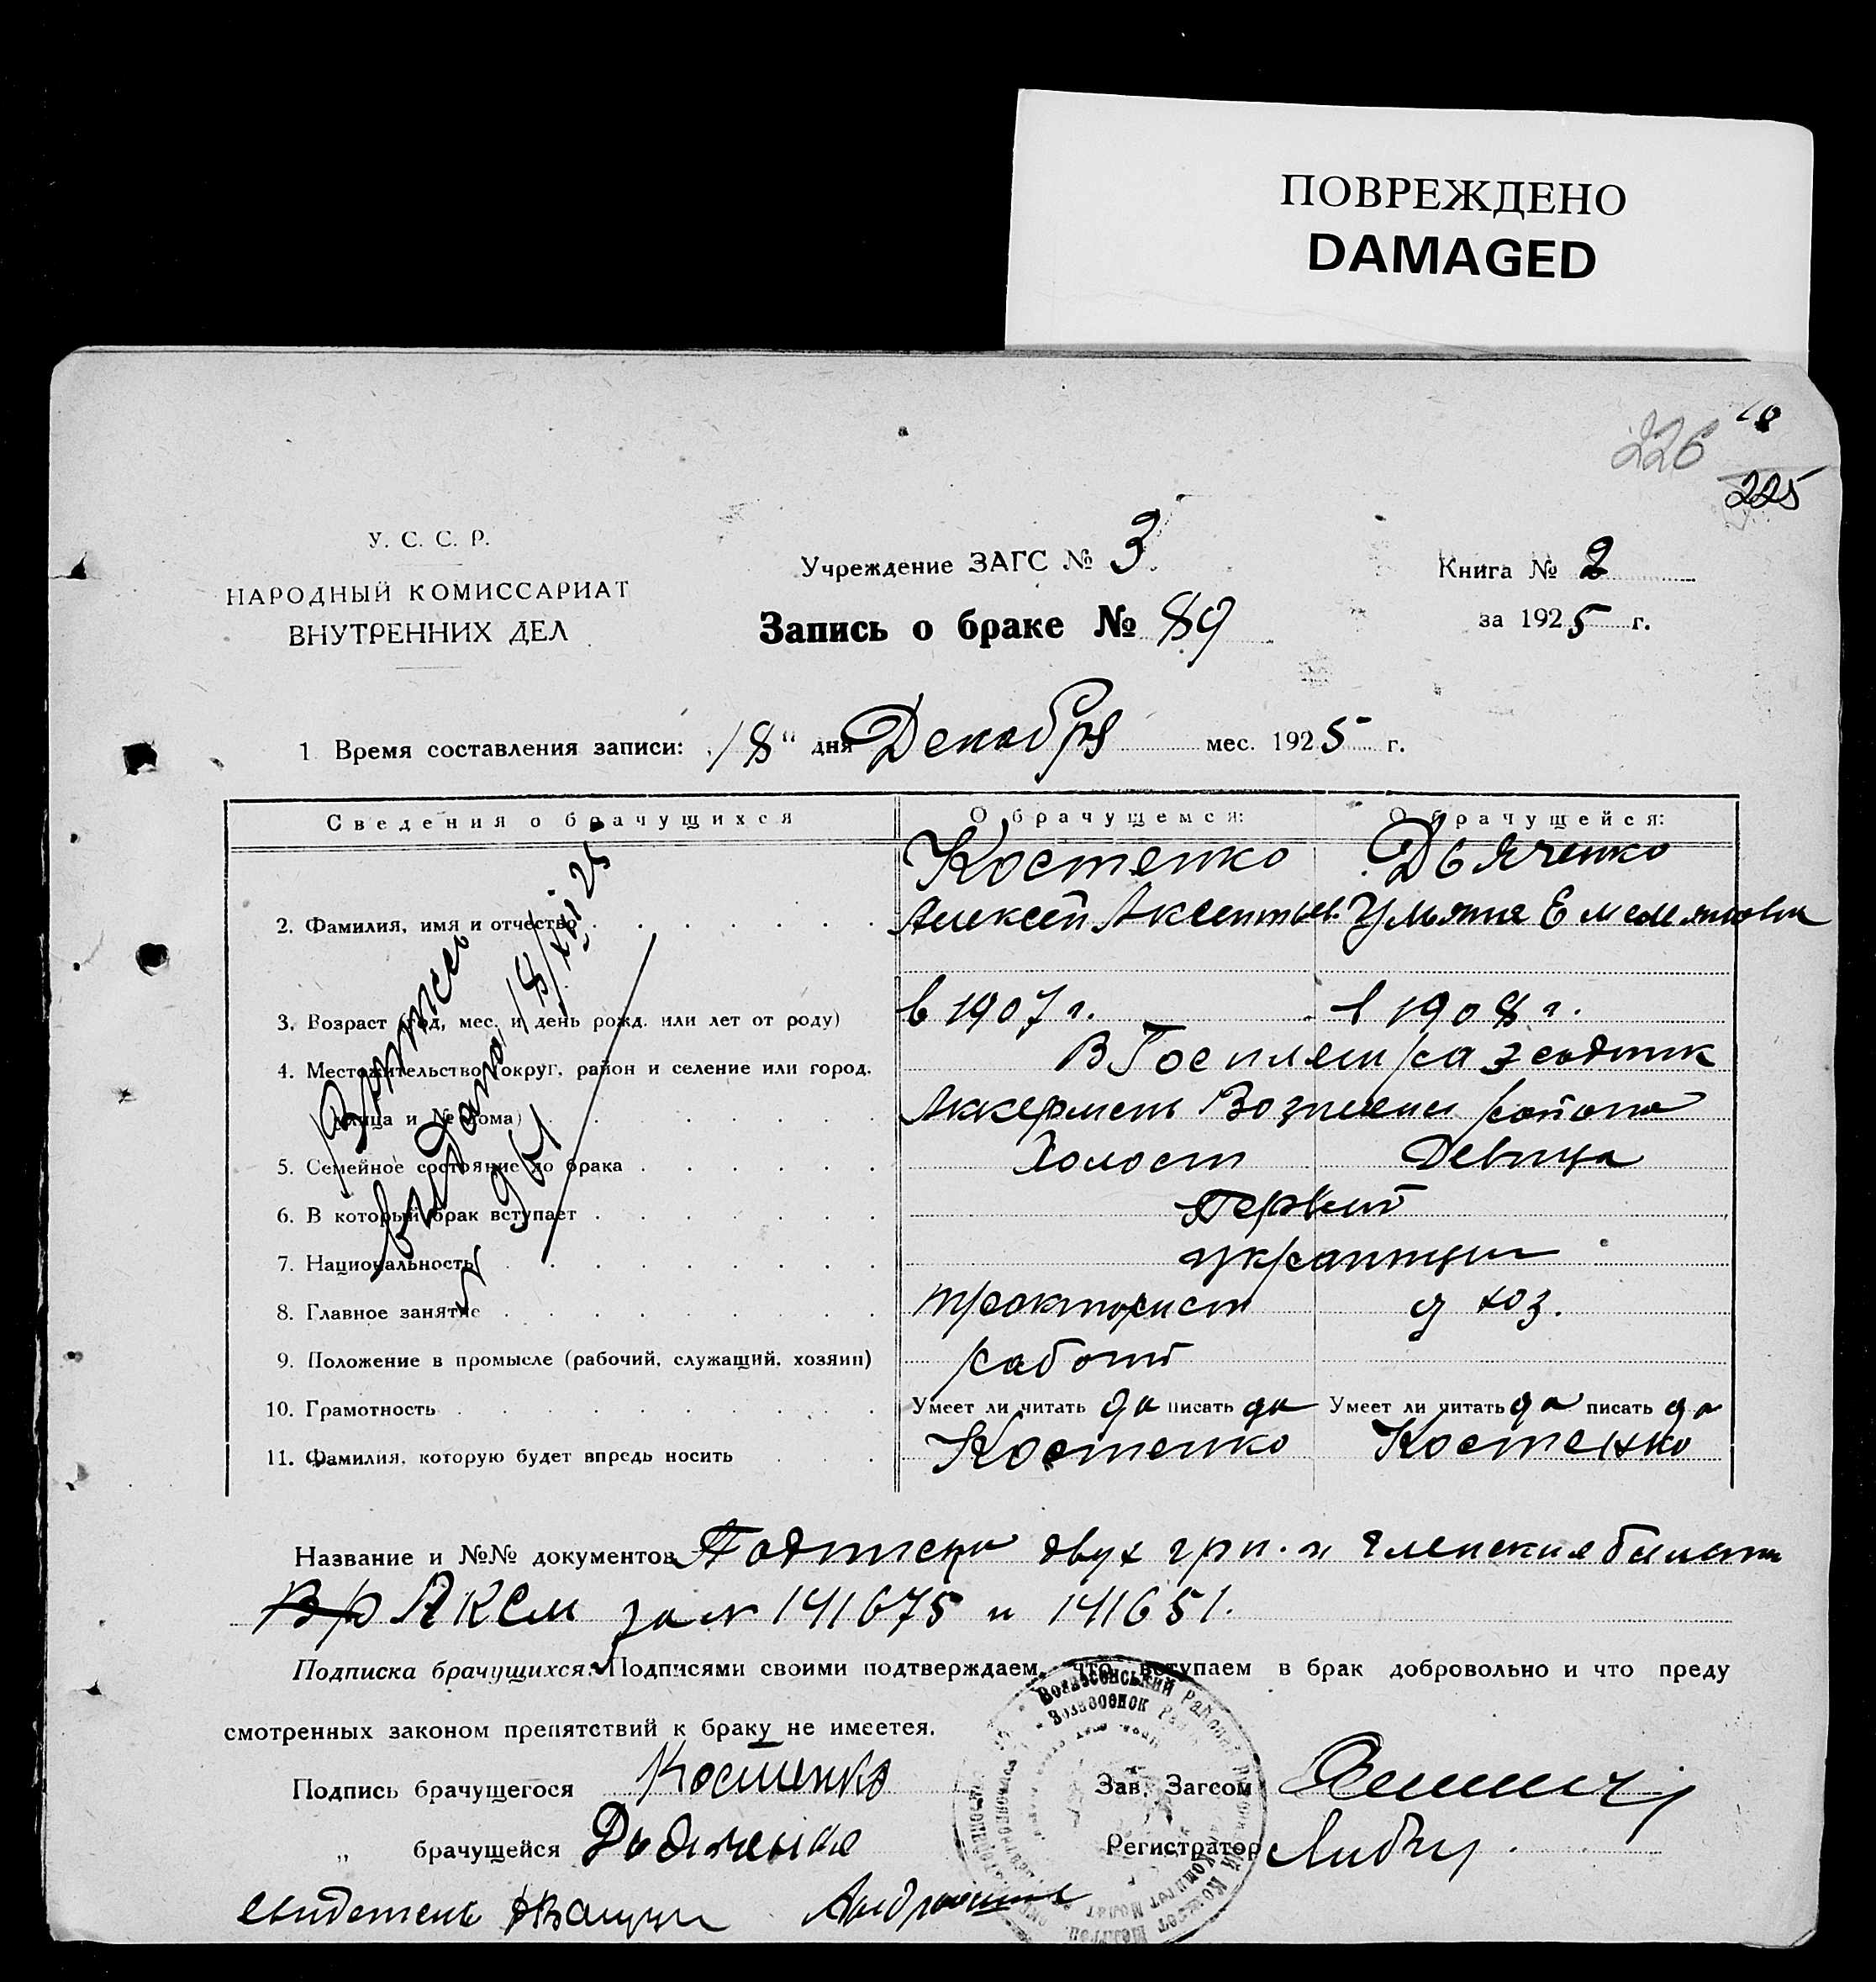 ПОВРЕЖДЕНО
DAMAGED
18
226
225
У. С. С. Р.
НАРОДНЫЙ КОМИССАРИАТ
ВНУТРЕННИХ ДЕЛ
Учреждение ЗАГС № 3
Запись о браке № 89
Книга № 2
за 1925 г.
1 Время составления записи: „18" дня Декабря мес. 1925 г.
Сведения о брачущихся О брачущемся: О брачущейся:
Костенко Дьяченко
2. Фамилия, имя и отчество Алексей Аксентьев. Ульяна Емельяновна
3. Возраст (год, мес. и день рожд. или лет от роду) в 1907 г. в 1908 г.
4. Местожительство (округ, район и селение или город, В Госплем
улица и № дома) Аккермень Вознесен района
5. Семейное состояние до брака Холост Девица
6. В который брак вступает первый
7. Национальность украинцы
8. Главное занятие тракторист д хоз.
9. Положение в промысле (рабочий, служащий, хозяин) рабочий
10. Грамотность Умеет ли читать да писать да Умеет ли читать да писать да
11. Фамилия, которую будет впредь носить Костенко Костенко
выдано 18/XII 25
Название и №№ документов Подписка двух гр. и Членские билеты
ЛКСМ за № 141675 и 141651.
Подписка брачущихся: Подписями своими подтверждаем, что вступаем в брак добровольно и что преду
смотренных законом препятствий к браку не имеется.
Подпись брачущегося Костенко Зав. Загсом
„ брачущейся Дьяченко Регистратор
свидетель